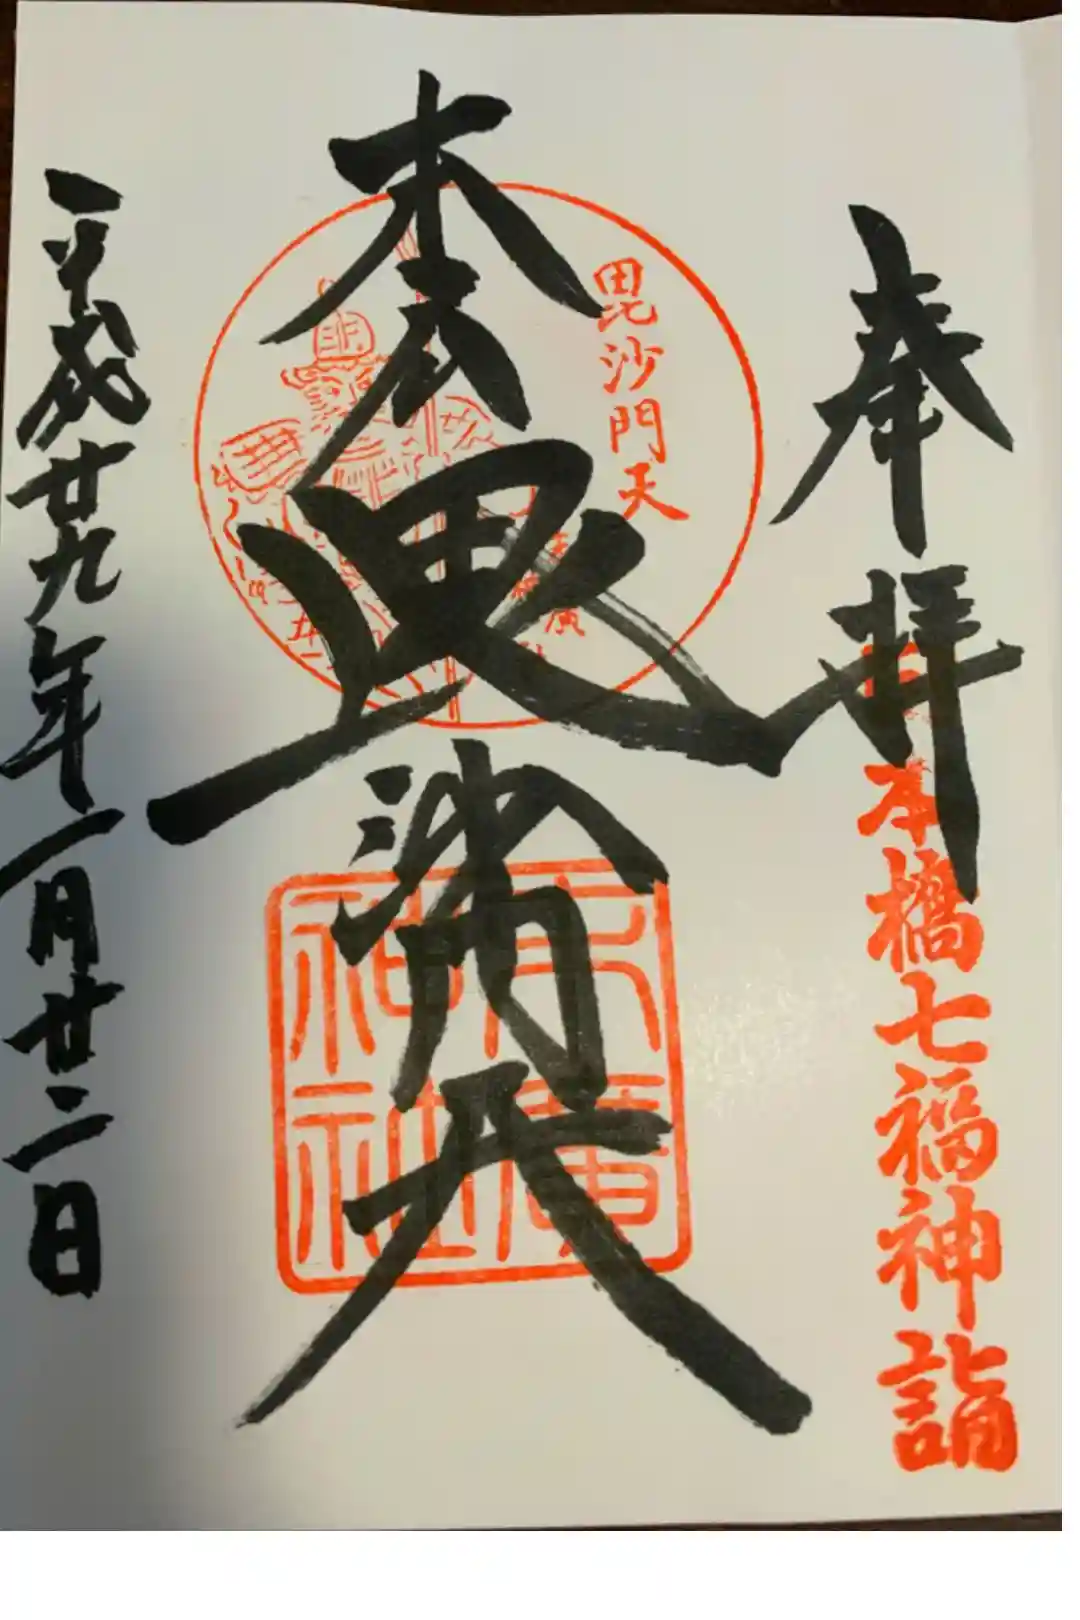 奉拝
日本橋七福神詣
毘沙門天
末広毘沙門天
末廣神社
平成廿九年一月廿二日